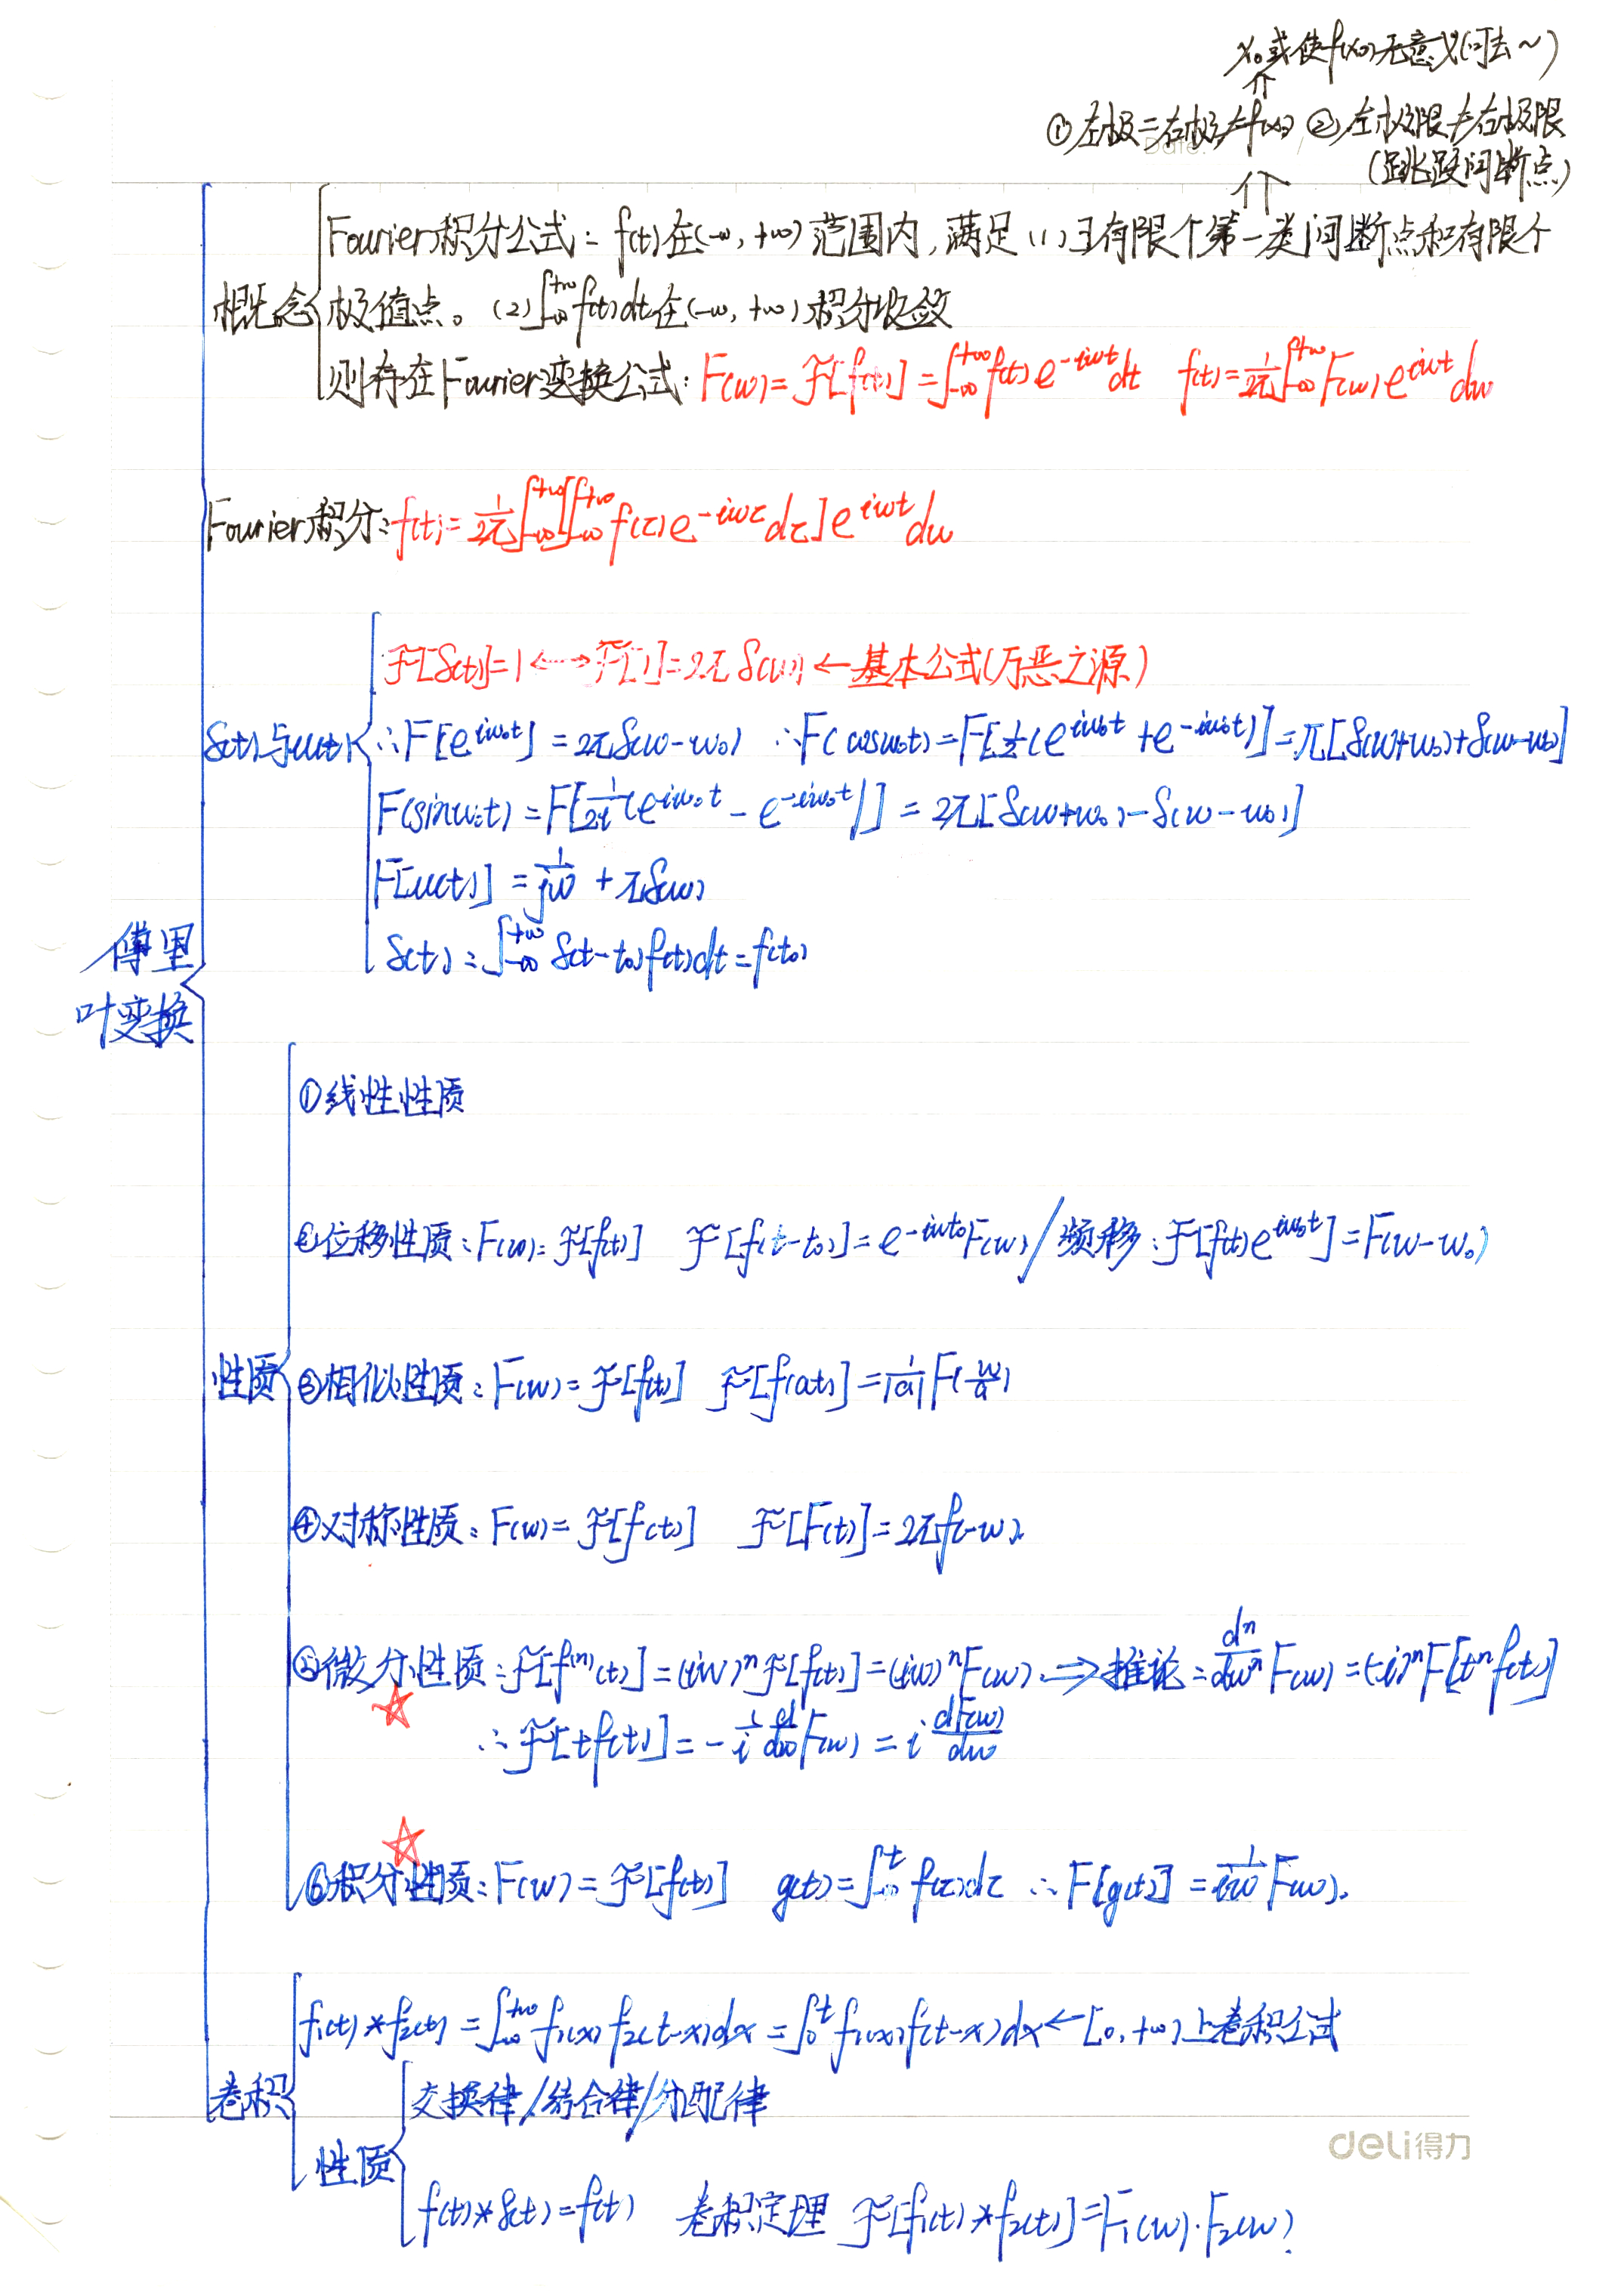 x₀或使f(x₀)无意义(可去~)
⇑
①左极=右极≠f(x₀) ②左极限≠右极限
(跳跃间断点)
⇑
Fourier积分公式：f(t)在(-∞, +∞)范围内,满足(1)有有限个第一类间断点和有限个
概念 极值点。(2)∫_{-∞}^{+∞}f(t)dt在(-∞, +∞)积分收敛
则存在Fourier变换公式：F(w)=ℱ[f(t)]=∫_{-∞}^{+∞}f(t)e^{-iwt}dt f(t)=1/2π∫_{-∞}^{+∞}F(w)e^{iwt}dw
Fourier积分：f(t)=1/2π∫_{-∞}^{+∞}[∫_{-∞}^{+∞}f(τ)e^{-iwτ}dτ]e^{iwt}dw
ℱ[δ(t)]=1<--->ℱ[1]=2πδ(w)←基本公式(万恶之源)
δ(t)与u(t) ∴F[e^{iw₀t}]=2πδ(w-w₀) ∴F(cosw₀t)=F[½(e^{iw₀t}+e^{-iw₀t})]=π[δ(w+w₀)+δ(w-w₀)]
F(sinw₀t)=F[1/2i(e^{iw₀t}-e^{-iw₀t})]=2π[δ(w+w₀)-δ(w-w₀)]
F[u(t)]=1/jw+πδ(w)
δ(t)：∫_{-∞}^{+∞}δ(t-t₀)f(t)dt=f(t₀)
傅里
叶变换
①线性性质
②位移性质：F(w)=ℱ[f(t)] ℱ[f(t-t₀)]=e^{-iwt₀}F(w)/频移：ℱ[f(t)e^{iw₀t}]=F(w-w₀)
性质 ③相似性质：F(w)=ℱ[f(t)] ℱ[f(at)]=1/|a|F(w/a)
④对称性质：F(w)=ℱ[f(t)] ℱ[F(t)]=2πf(-w)
⑤微分性质：ℱ[f^{(n)}(t)]=(iw)^nℱ[f(t)]=(iw)^nF(w).⇒推论：d^n/dw^n F(w)=(-i)^nF[t^n f(t)]
☆ ∴ℱ[tf(t)]=-1/i d/dw F(w)=i dF(w)/dw
☆
⑥积分性质：F(w)=ℱ[f(t)] g(t)=∫_{-∞}^{t}f(τ)dτ ∴F[g(t)]=1/iw F(w).
f₁(t)*f₂(t)=∫_{-∞}^{+∞}f₁(x)f₂(t-x)dx=∫_0^t f₁(x)f(t-x)dx←[0,+∞)上卷积公式
卷积
交换律/结合律/分配律
性质
f(t)*δ(t)=f(t) 卷积定理 ℱ[f₁(t)*f₂(t)]=F₁(w)·F₂(w)
deli得力